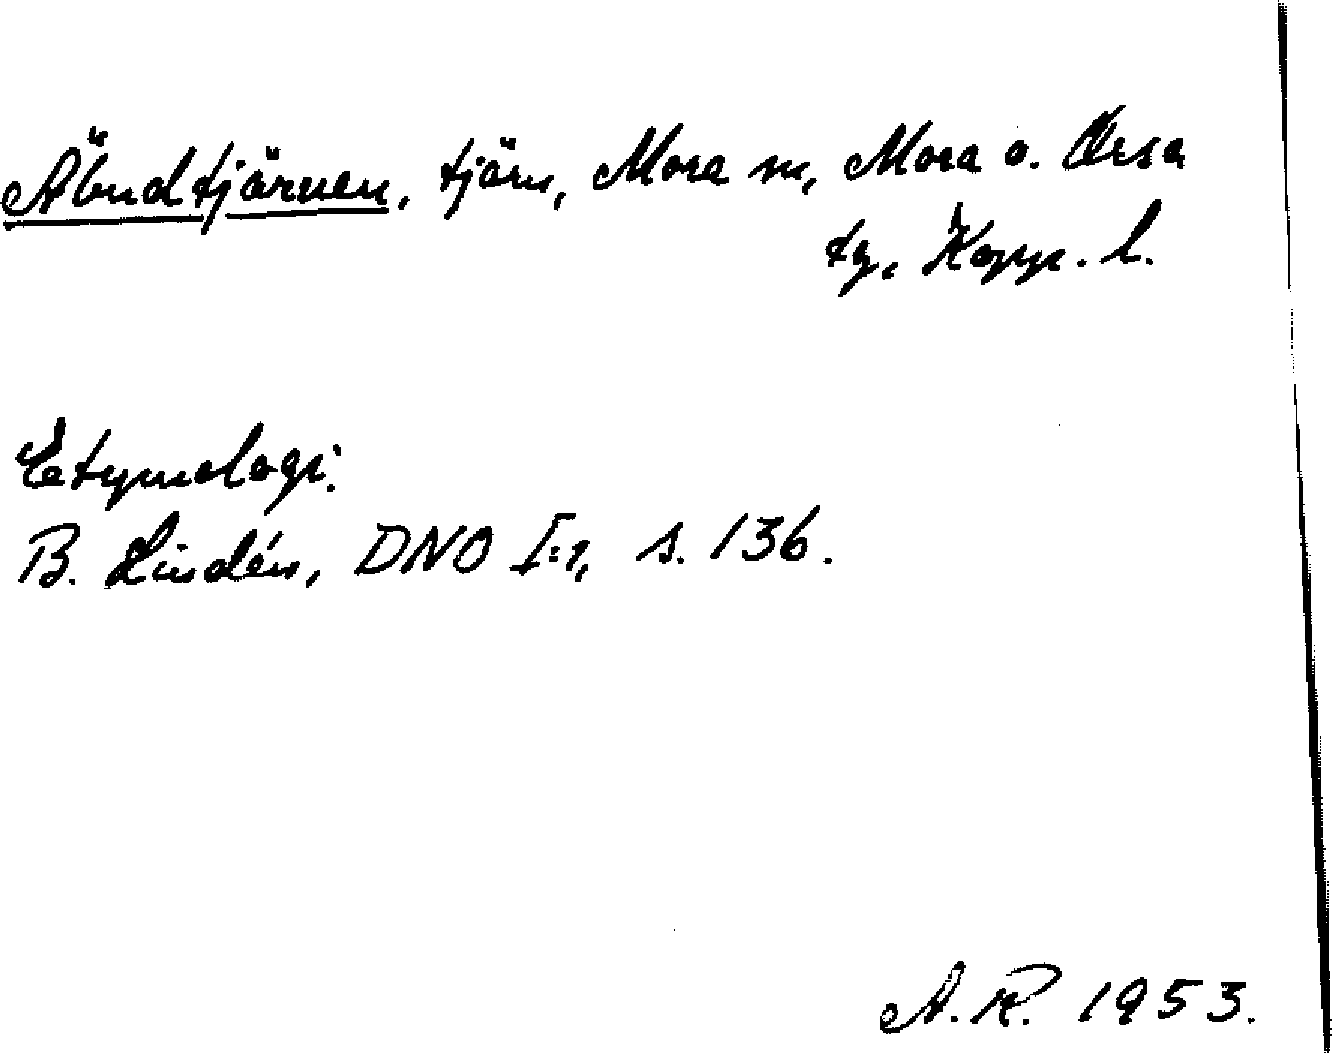 Äbudtjärnen, tjärn, Mora sn, Mora o. Orsa
tg, Kopp. l.
Etymologi:
B. Lindén, DNO I:1, s. 136.
A.R. 1953.